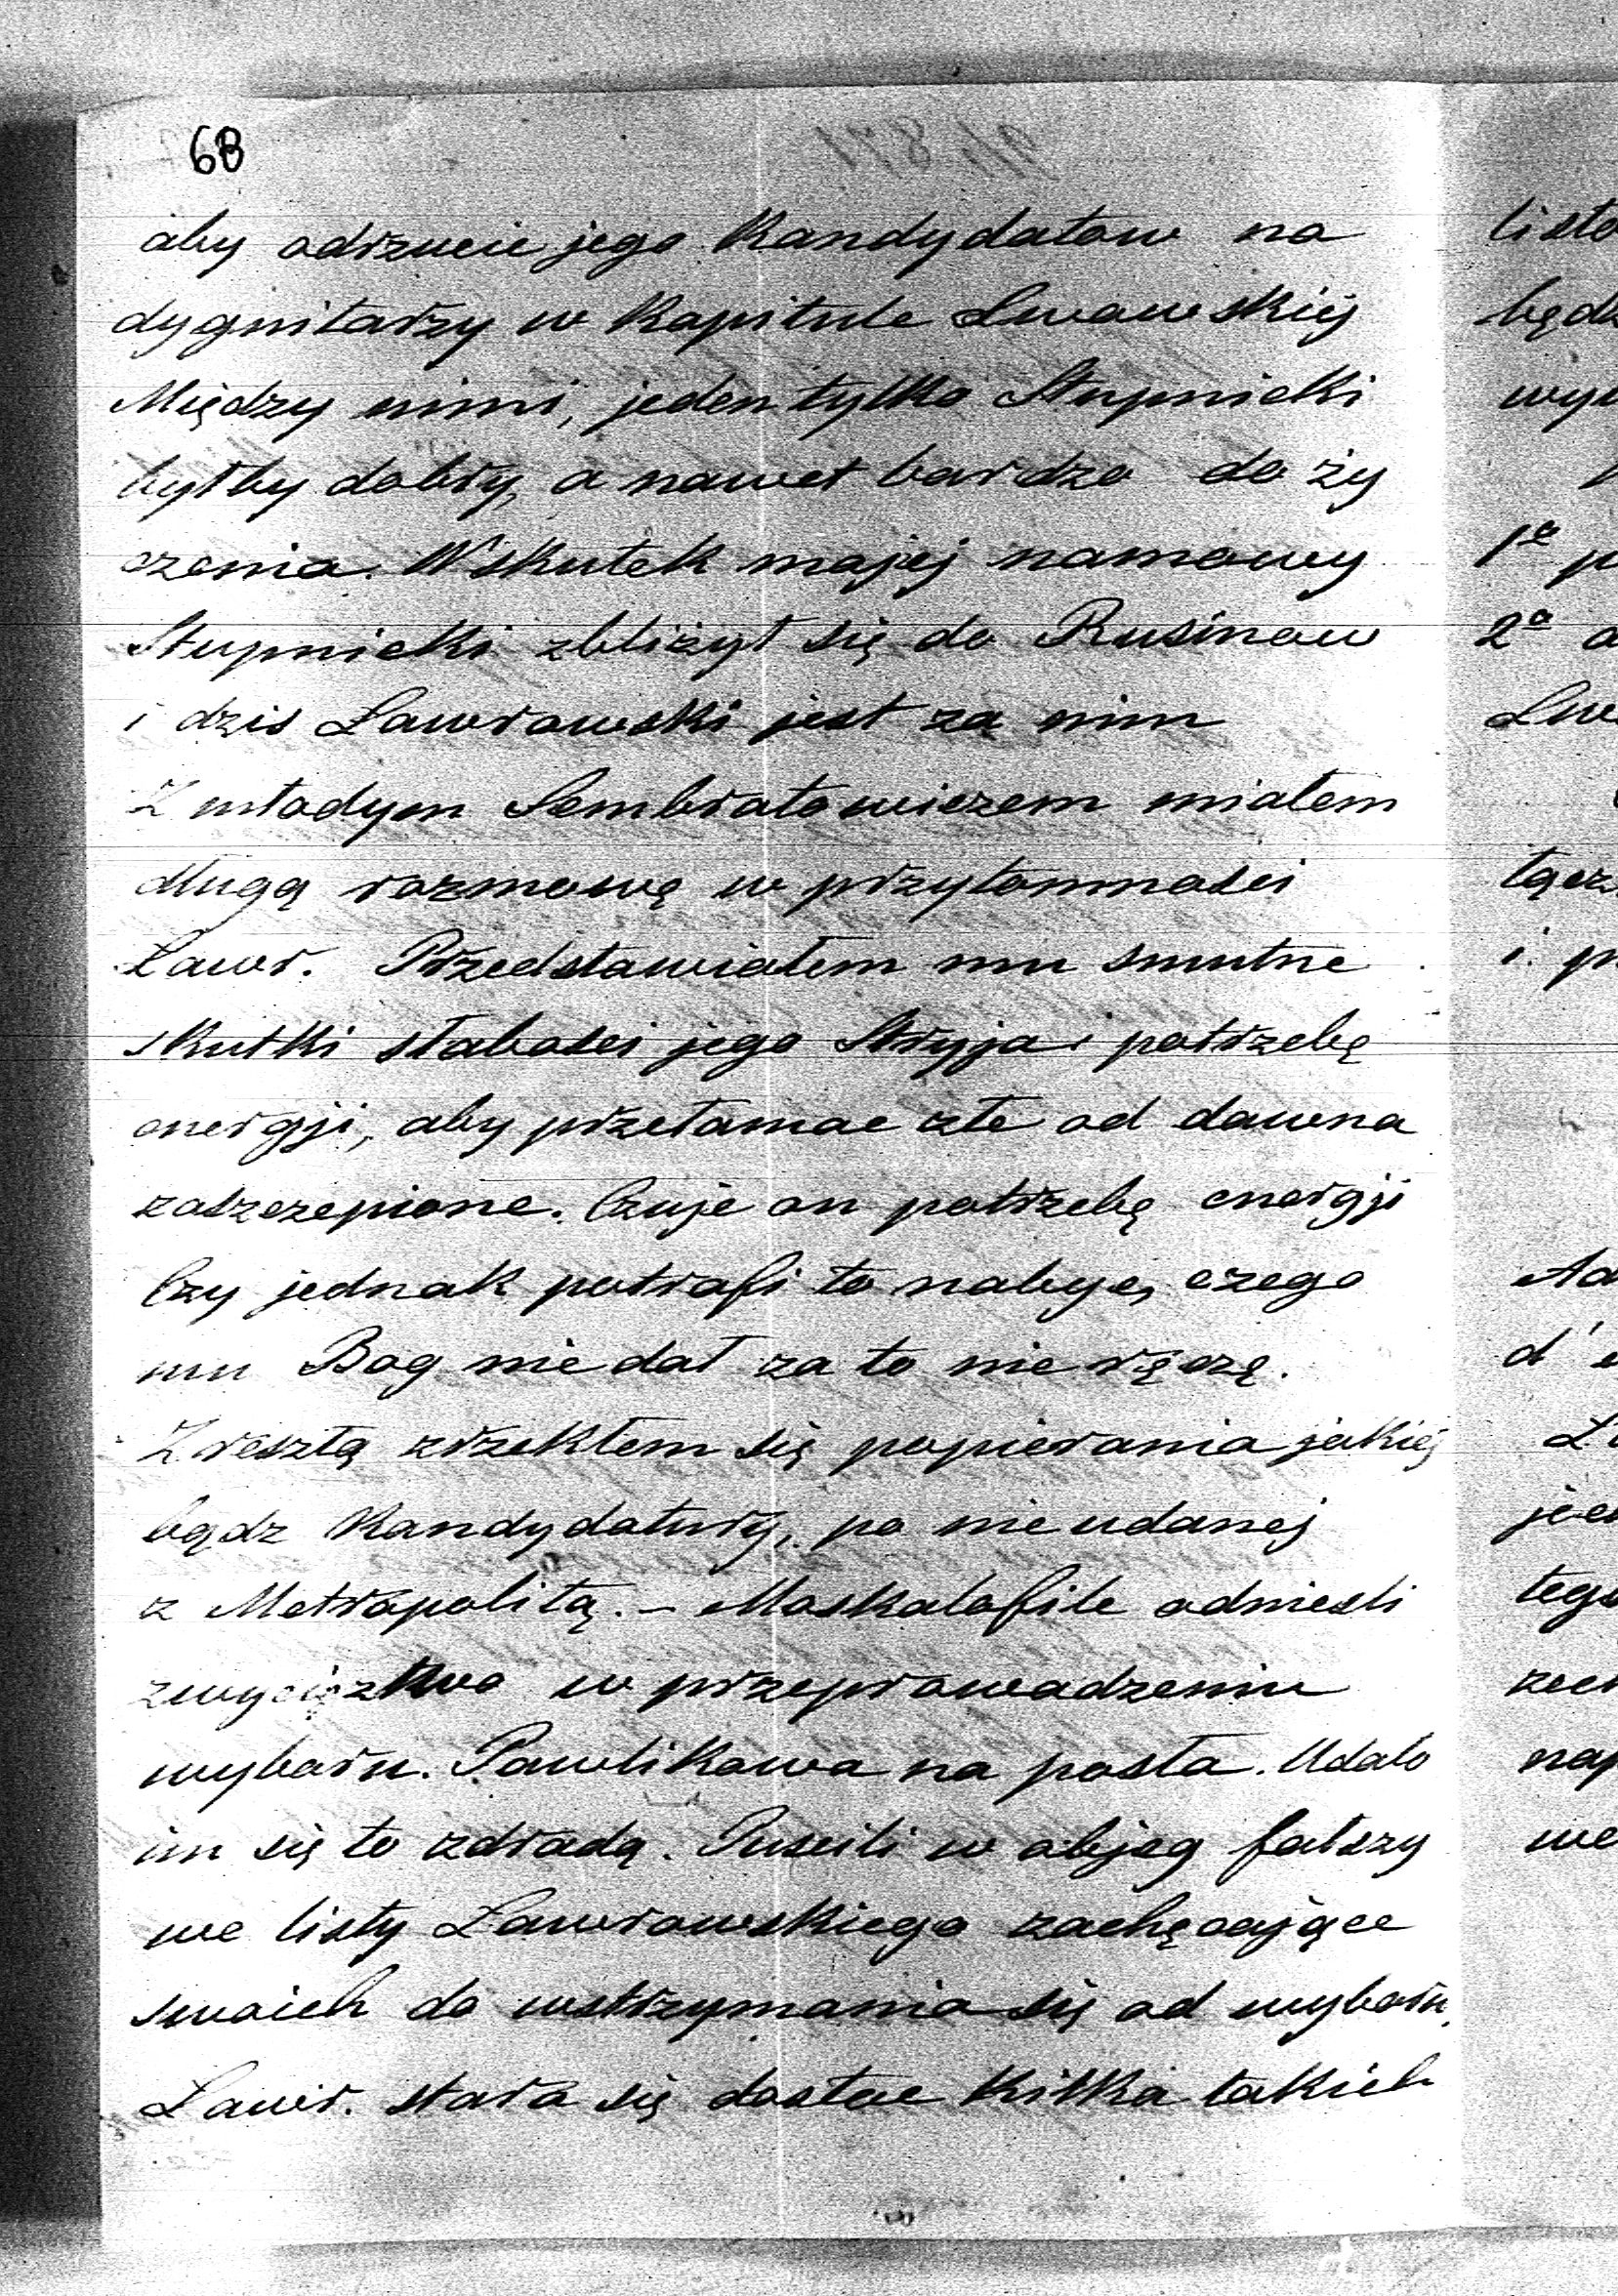 68
aby odrzucie jego Kandydatow na
dygnitarzy w Kapitule Lwowskiej
Między nimi, jeden tylko Stupnicki
byłby dobry, a nawet bardzo do ży
czenia. Wskutek mojej namowy
Stupnicki zbliżył się do Rusinow
i dzis Ławrowski jest za nim
Z młodym Sembratowiczem miałem
długą rozmowę w przytomnosci
Ławr. Przedstawiałem mu smutne
skutki słabosci jego Stryja i potrzebę
energji, aby przełamac złe od dawna
zaszczepione. Czuje on potrzebę energji
Czy jednak potrafi to nabyc, czego
mu Bog nie dał za to nie ręczę.
Zresztą zrzekłem się popierania jakiej
bądz Kandydatury, po nieudanej
z Metropolitą. – Moskalofile odniesli
zwycięztwo w przeprowadzeniu
wyboru. Pawlikowa na posła. Udało
im się to zdradą. Puscili w obieg fałszy
we listy Ławrowskiego zachęcające
swoich do wstrzymania się od wyboru,
Ławr. stara się dostac kilka takich
listo
będ
wy
1º p
2º
Lw
łącz
i p
Ad
d'
je
tego
zec
nap
we